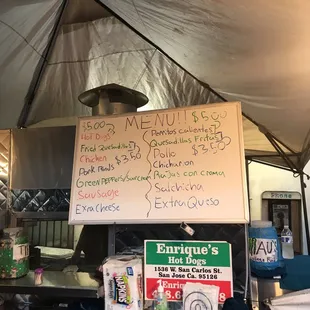 MENU!!
$5.00
Hot Dogs
Fried Quesadillas
Chicken $3.50
Pork Rinds
Green Peppers/Sour cream
Sausage
Exra cheese
$5.00
Perritos calientes
Quesadillas Fritas
Pollo $3.50
Chicharon
Rajas con crema
Salchicha
Extra Queso
Enrique's
Hot Dogs
1536 W. San Carlos St.
San Jose Ca. 95126
Enrique